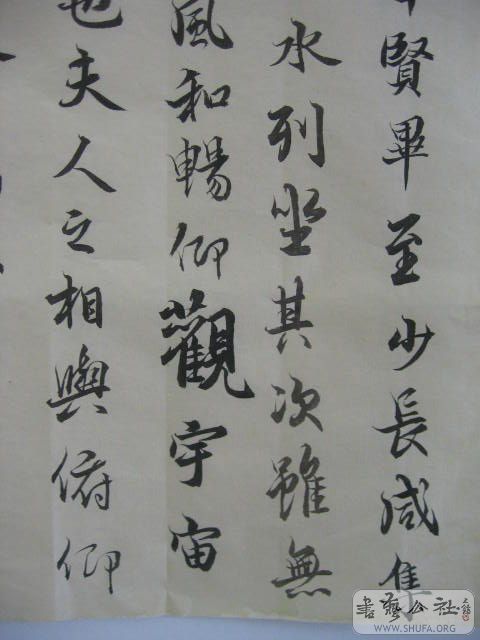 賢畢至少長咸集
水列坐其次雖無
風和暢仰觀宇宙
也夫人之相與俯仰
書藝公社
WWW.SHUFA.ORG